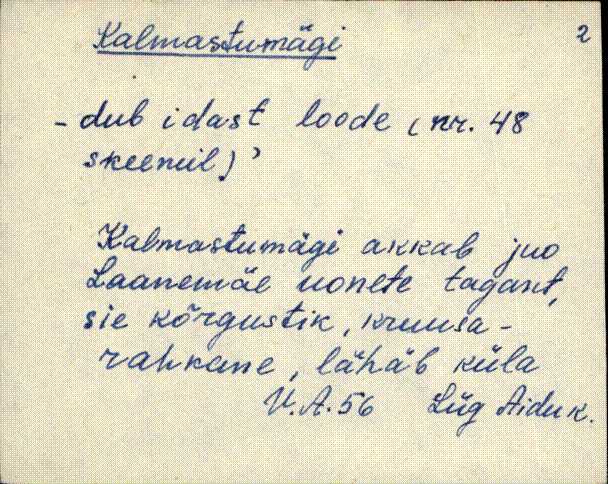 Kalmastumägi
2
- dub idast loode (nr. 48
skeemil)’
Kalmastumägi akkab juo
Laanemäe uonete tagant,
sie kõrgustik, kruusa-
rahkane, lähäb küla
V.A. 56 Lüg Aidu k.